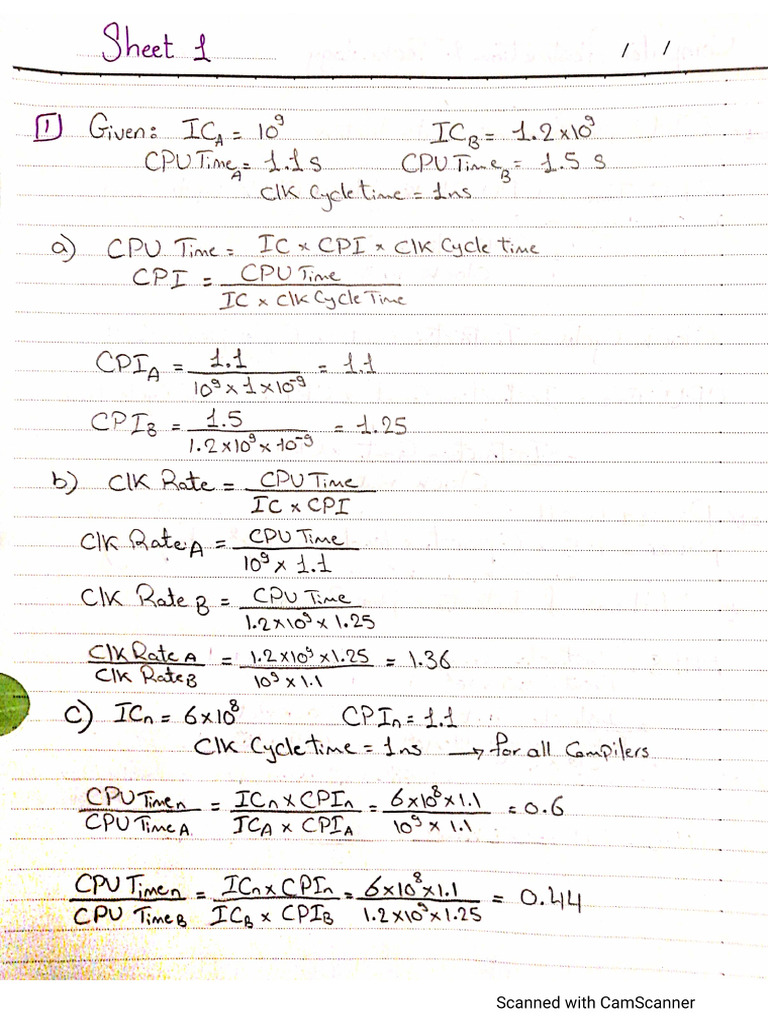 Sheet 1
/ /
1 Given: IC_A = 10^9 IC_B = 1.2×10^9
CPU Time_A = 1.1 s CPU Time_B = 1.5 s
Clk Cycle time = 1ns
a) CPU Time = IC × CPI × Clk Cycle time
CPI = CPU Time / IC × Clk Cycle Time
CPI_A = 1.1 / 10^9 × 1 × 10^-9 = 1.1
CPI_B = 1.5 / 1.2×10^9 × 10^-9 = 1.25
b) Clk Rate = CPU Time / IC × CPI
Clk Rate A = CPU Time / 10^9 × 1.1
Clk Rate B = CPU Time / 1.2×10^9 × 1.25
Clk Rate A / Clk Rate B = 1.2×10^9 × 1.25 / 10^9 × 1.1 = 1.36
c) IC_n = 6×10^8 CPI_n = 1.1
Clk Cycle time = 1ns → for all Compilers
CPU Time_n / CPU Time_A = IC_n × CPI_n / IC_A × CPI_A = 6×10^8 × 1.1 / 10^9 × 1.1 = 0.6
CPU Time_n / CPU Time_B = IC_n × CPI_n / IC_B × CPI_B = 6×10^8 × 1.1 / 1.2×10^9 × 1.25 = 0.44
Scanned with CamScanner